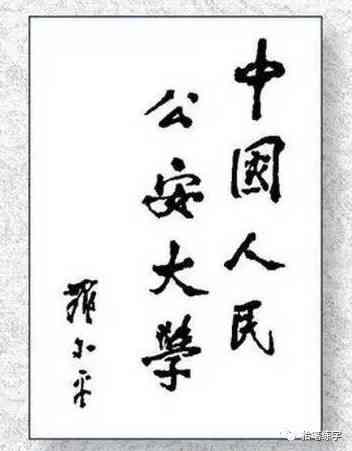 中國人民
公安大學
鄧小平